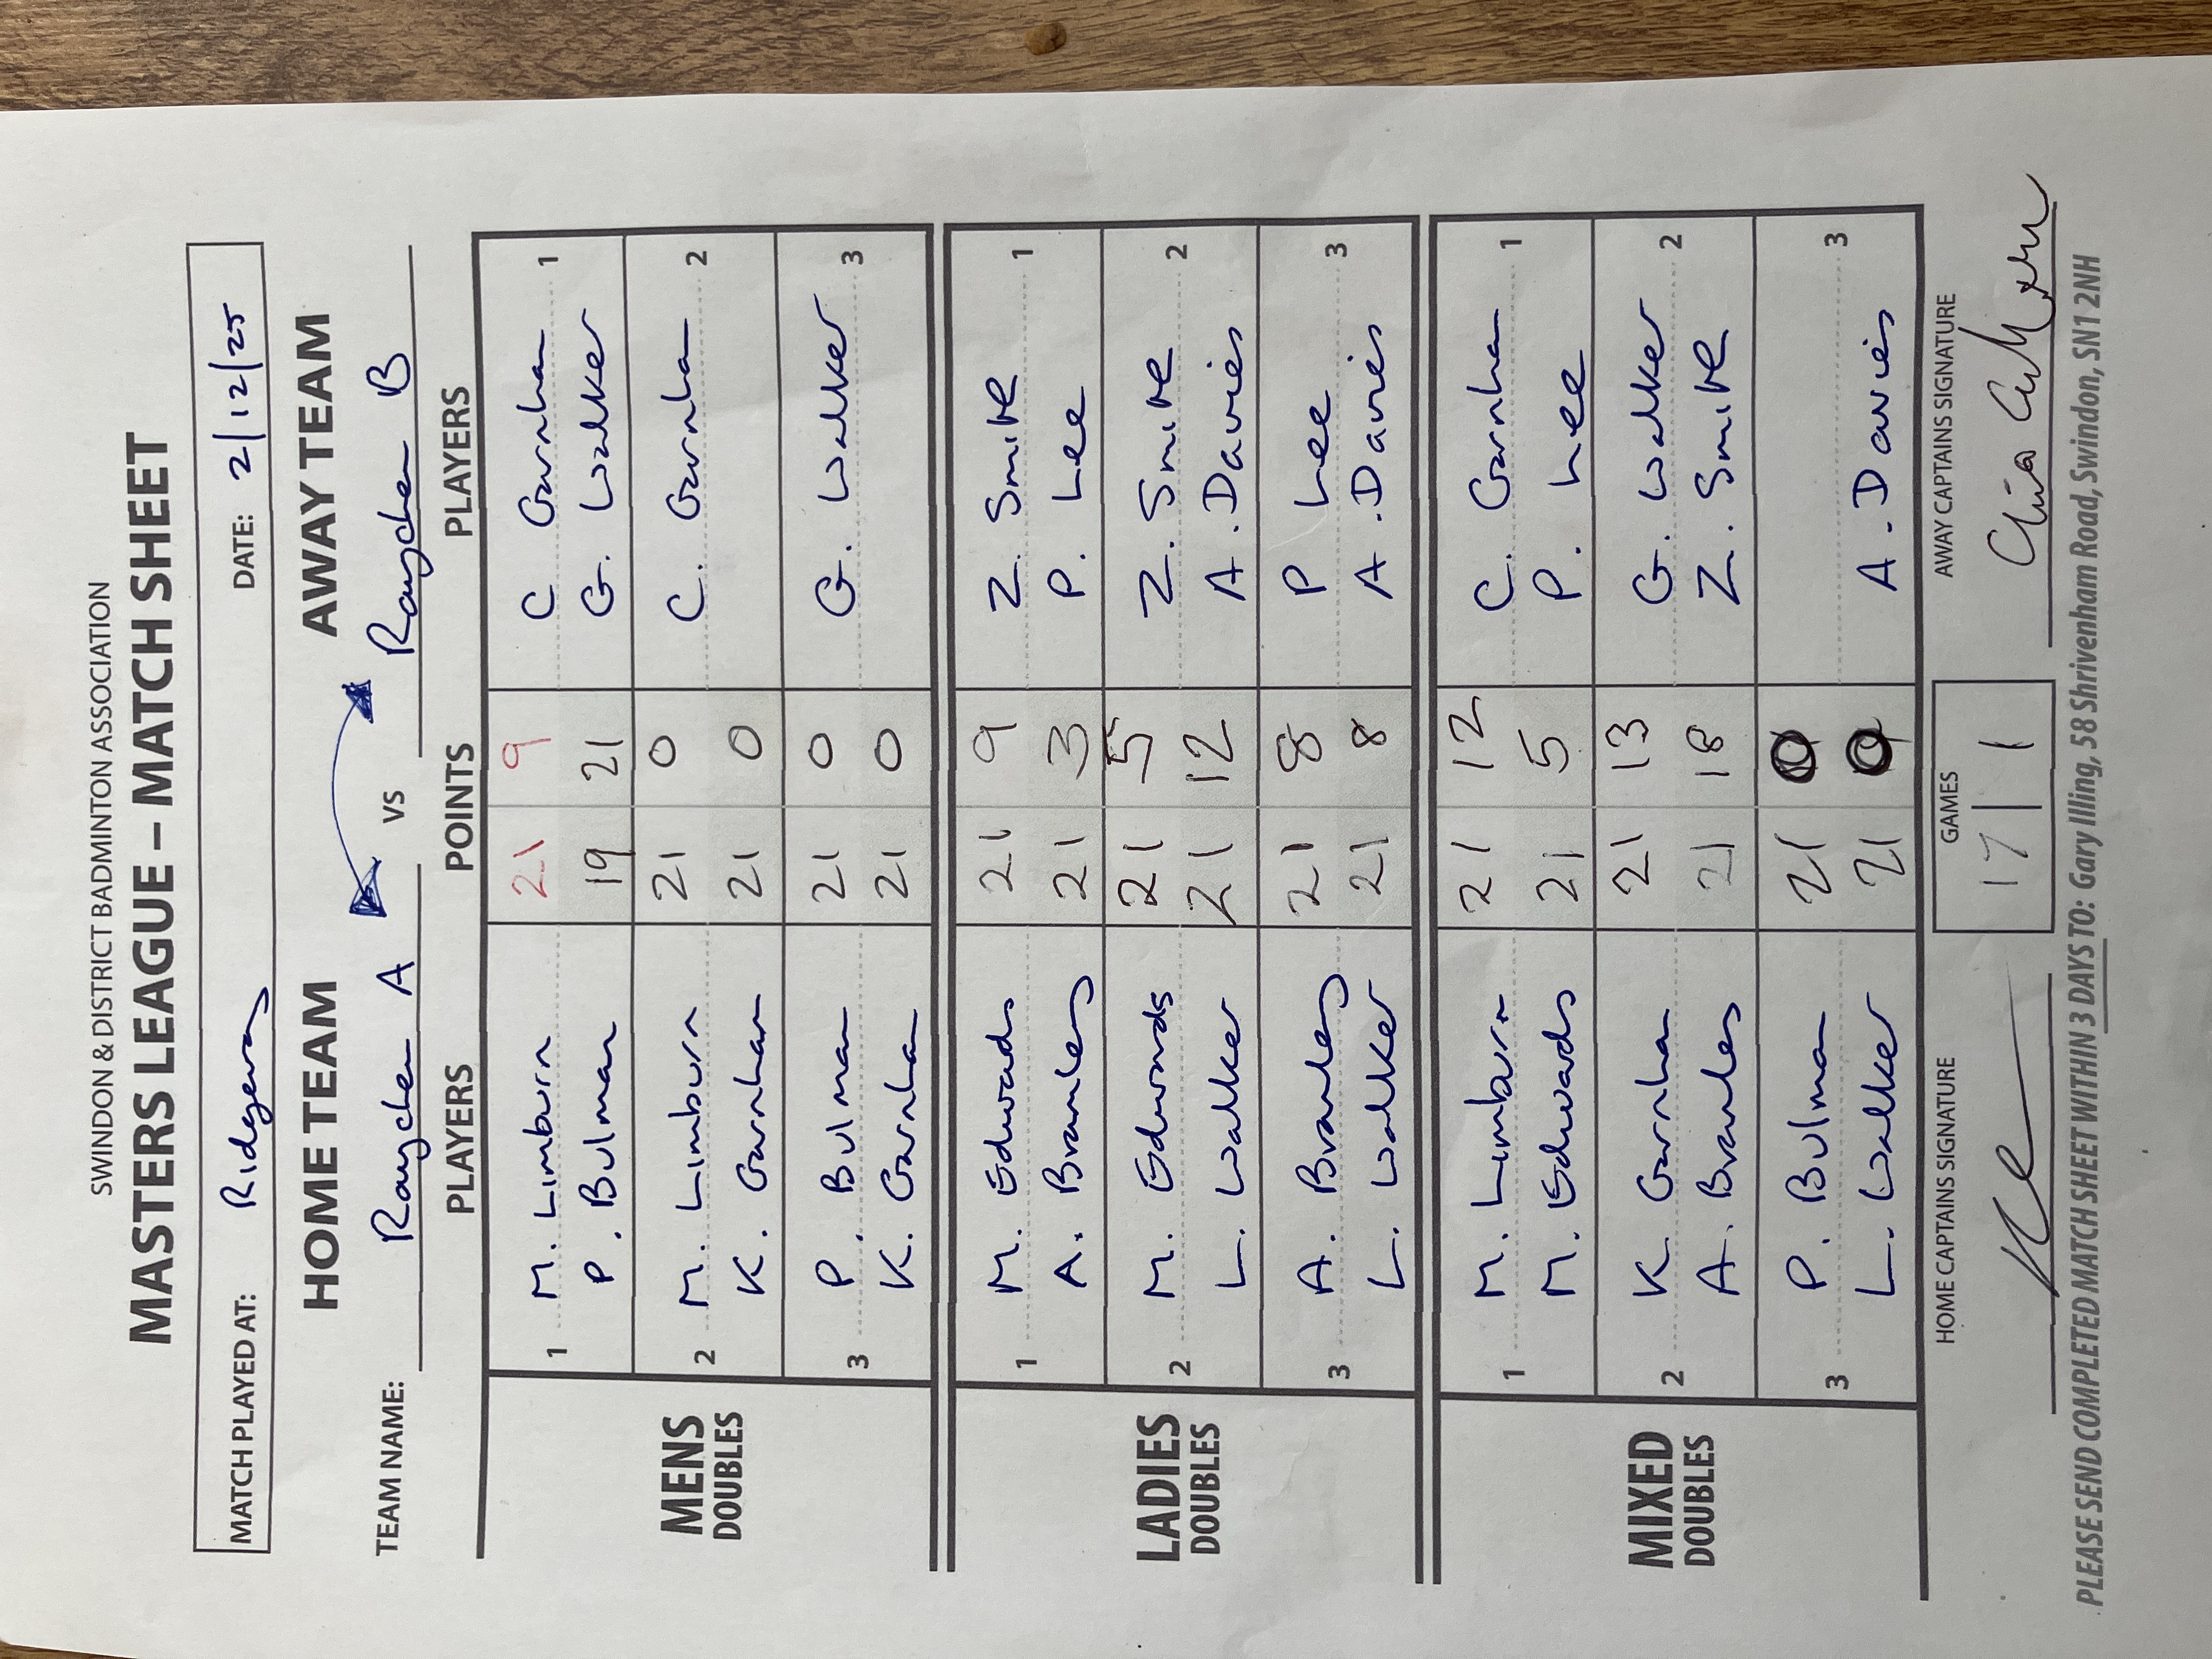 SWINDON & DISTRICT BADMINTON ASSOCIATION
MASTERS LEAGUE – MATCH SHEET
MATCH PLAYED AT: Ridgeway DATE: 2/12/25
HOME TEAM VS AWAY TEAM
TEAM NAME: Raychem A Raychem B
PLAYERS POINTS PLAYERS
MENS DOUBLES
1 M. Limburn 21 9 C. Garnham 1
P. Bulman 19 21 G. Walker
2 M. Limburn 21 0 C. Garnham 2
K. Garnham 21 0
3 P. Bulman 21 0 G. Walker 3
K. Garnham 21 0
LADIES DOUBLES
1 M. Edwards 21 9 Z. Smith 1
A. Bramley 21 3 P. Lee
2 M. Edwards 21 5 Z. Smith 2
L. Walker 21 12 A. Davies
3 A. Bramley 21 8 P Lee 3
L. Walker 21 8 A. Davies
MIXED DOUBLES
1 M. Limburn 21 12 C. Garnham 1
M. Edwards 21 5 P. Lee
2 K. Garnham 21 13 G. Walker 2
A. Bramley 21 18 Z. Smith
3 P. Bulman 21 0 3
L. Walker 21 0 A. Davies
HOME CAPTAINS SIGNATURE GAMES AWAY CAPTAINS SIGNATURE
17 1
PLEASE SEND COMPLETED MATCH SHEET WITHIN 3 DAYS TO: Gary Illing, 58 Shrivenham Road, Swindon, SN1 2NH